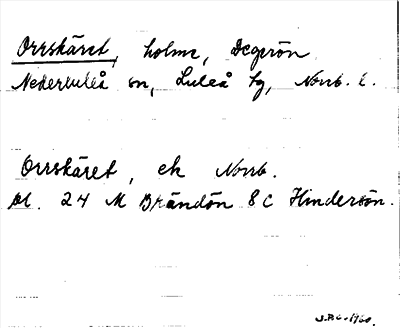 Orrskäret, holme, Degerön
Nederluleå sn, Luleå tg, Norrb. l.
Orrskäret, ek Norrb.
bl. 24 M Brändön 8 C Hindersön.